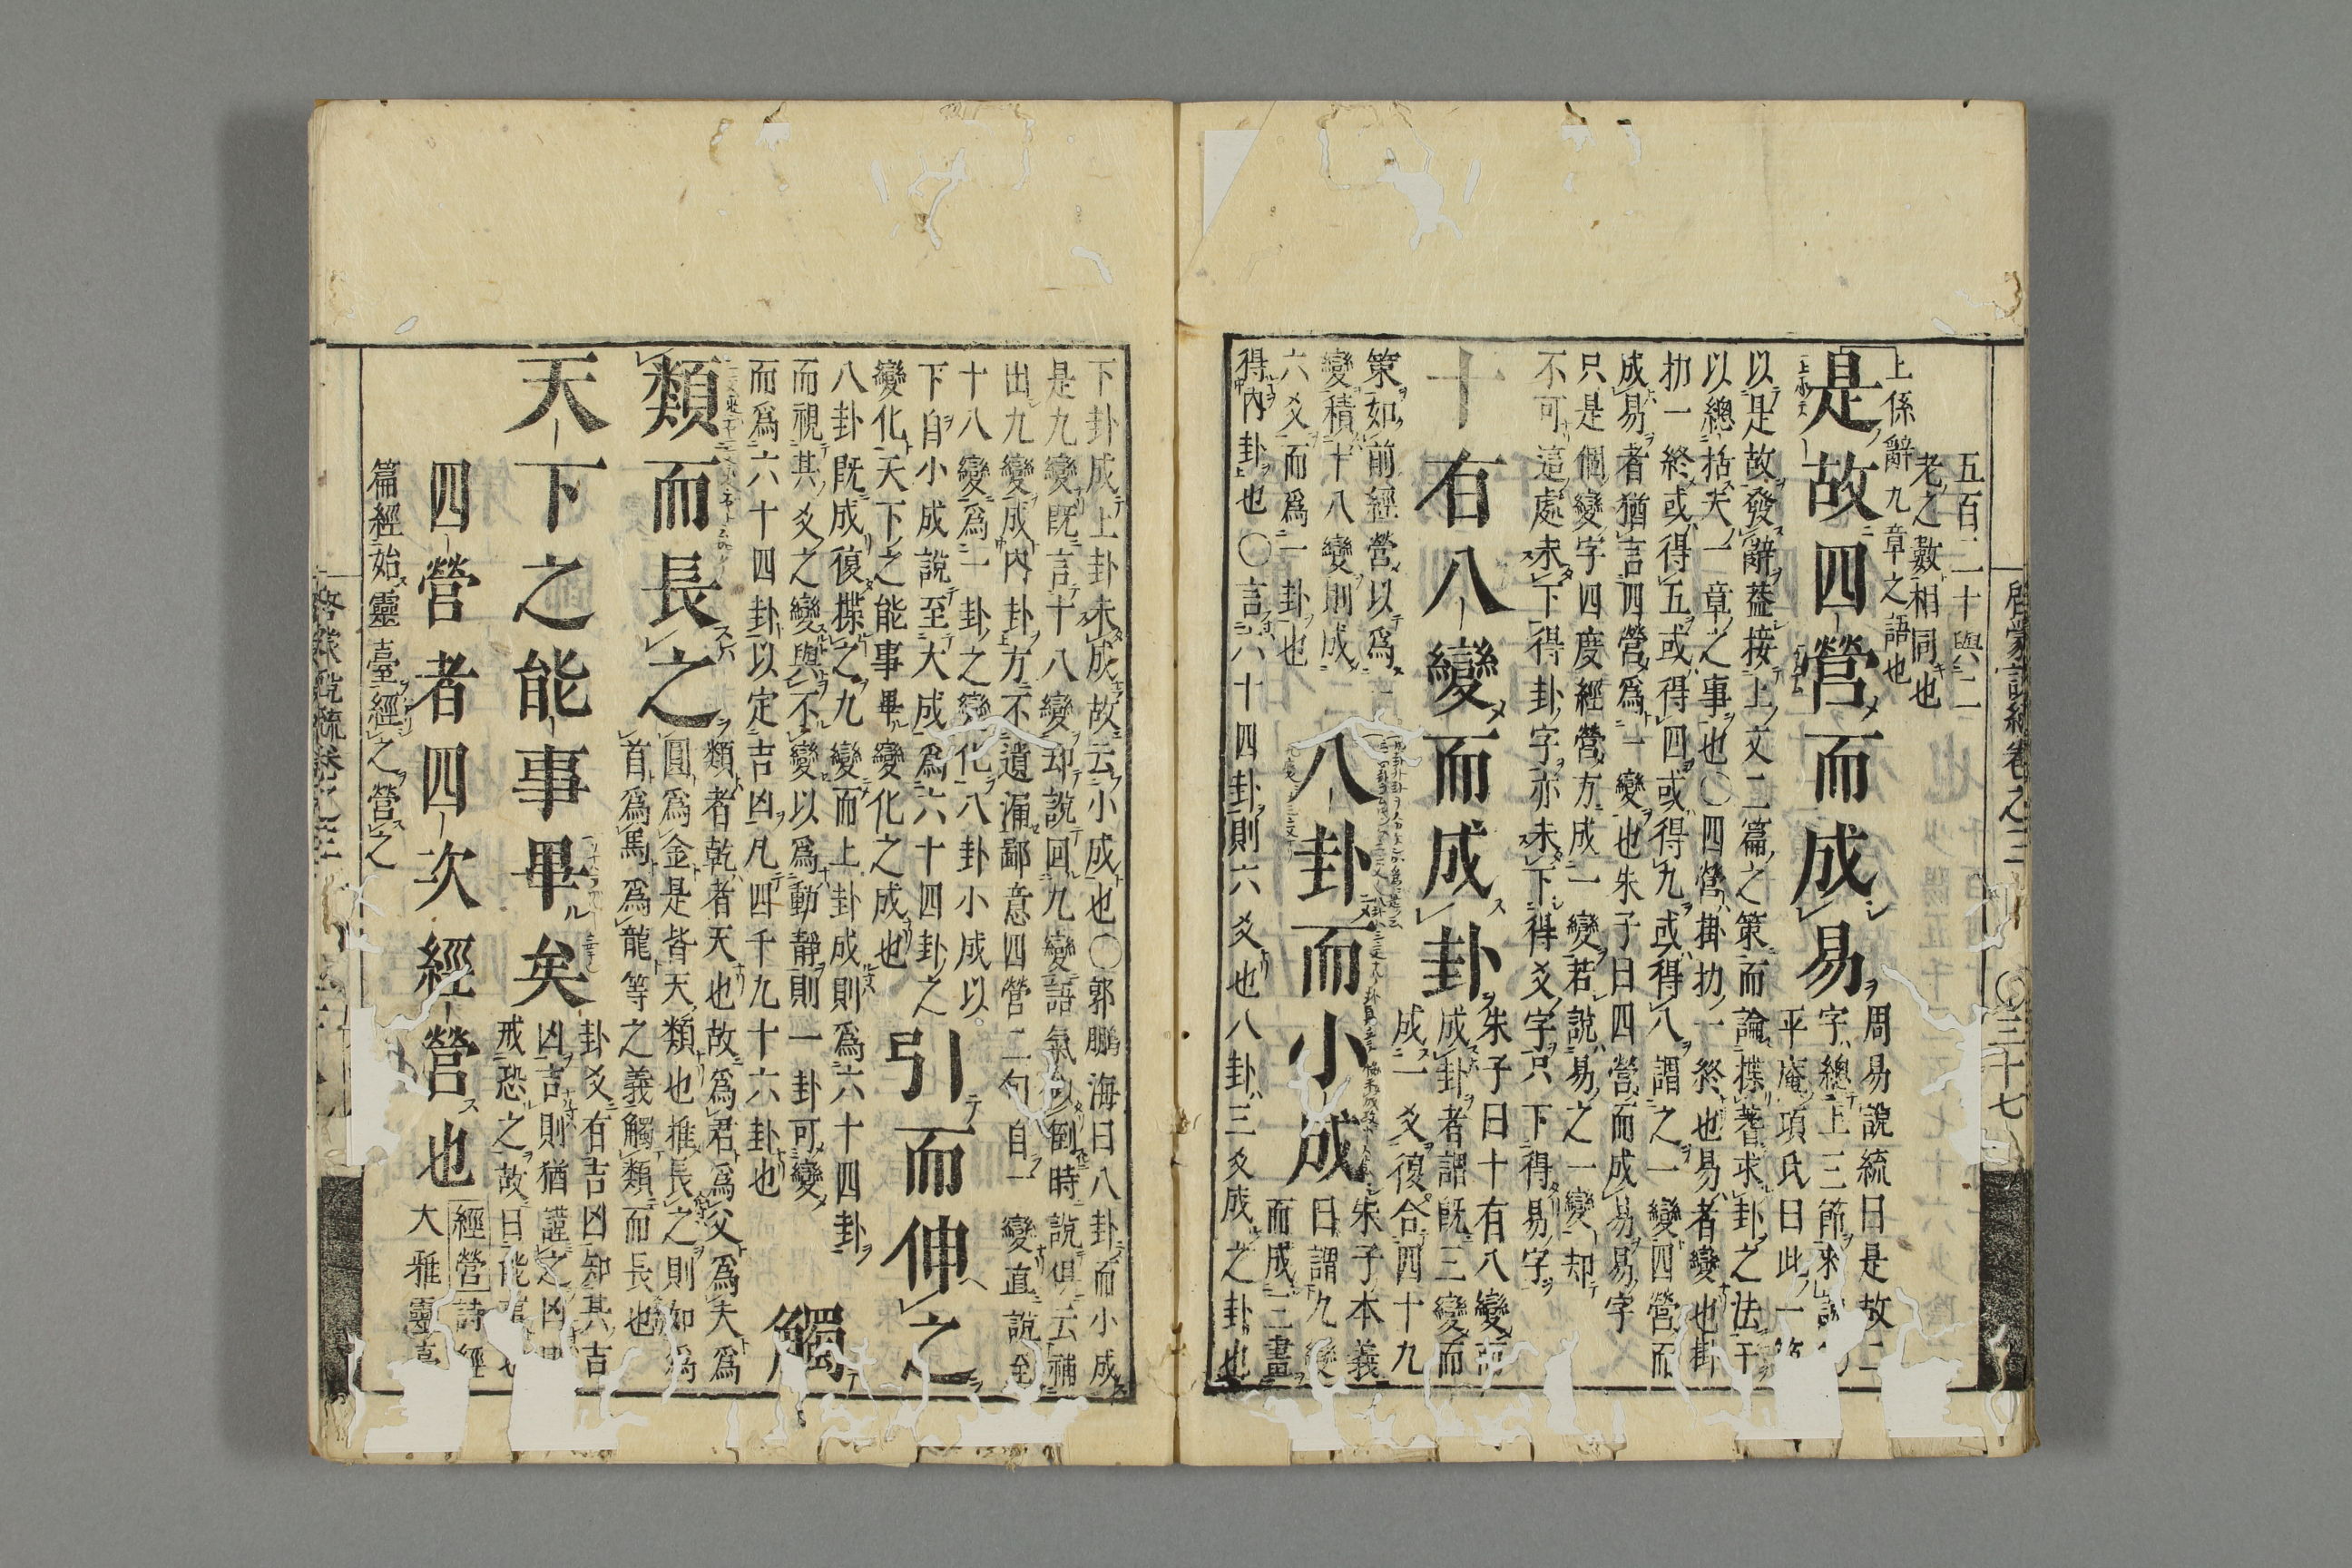 啓蒙說統卷之三 〇三十七
五百二十與二
老之數相同也
上係辭九章之語也
是故四營而成易
周易說統曰是故二
字總上三節來
平庵項氏曰此一
以是故發辭葢接上文二篇之策而論揲蓍求卦之法
以總括夫一章之事也〇四營掛扐一終也易者變也掛
扐一終或得五或得四或得九或得八謂之一變四營而
成易者猶言四營爲一變也朱子曰四營而成易易字
只是個變字四度經營方成一變若說易之一變却
不可這處未下得卦字亦未下得爻字只下得易字
十有八變而成卦
朱子曰十有八變而
成卦者謂旣三變而
成一爻復合四十九
策如前經營以爲一
變積十八變則成
六爻而爲一卦也
八卦而小成
朱子本義
曰謂九變
而成三畫
得內卦也〇言六十四卦則六爻也八卦三爻成之卦也
下卦成上卦未成故云小成也〇郭鵬海曰八卦而小成
是九變旣言十八變却說回九變語氣似倒時說俱云補
出九變成內卦方不遺漏鄙意四營二句自一變直說至
十八變爲一卦之變化八卦小成以
下自小成說至大成爲六十四卦之
變化天下之能事畢變化之成也
引而伸之
八卦旣成復揲之九變而上卦成則爲六十四卦
而視其爻之變與不變以爲動靜則一卦可變
而爲六十四卦以定吉凶凡四千九十六卦也
觸
類而長之
類者乾者天也故爲君爲父爲夫爲
圓爲金是皆天類也推長之則如爲
首爲馬爲龍等之義觸類而長也
天下之能事畢矣
卦爻有吉凶知其吉
凶吉則猶謹之凶
戒恐之故曰能事
四營者四次經營也
經營詩經
大雅靈臺
篇經始靈臺經之營之